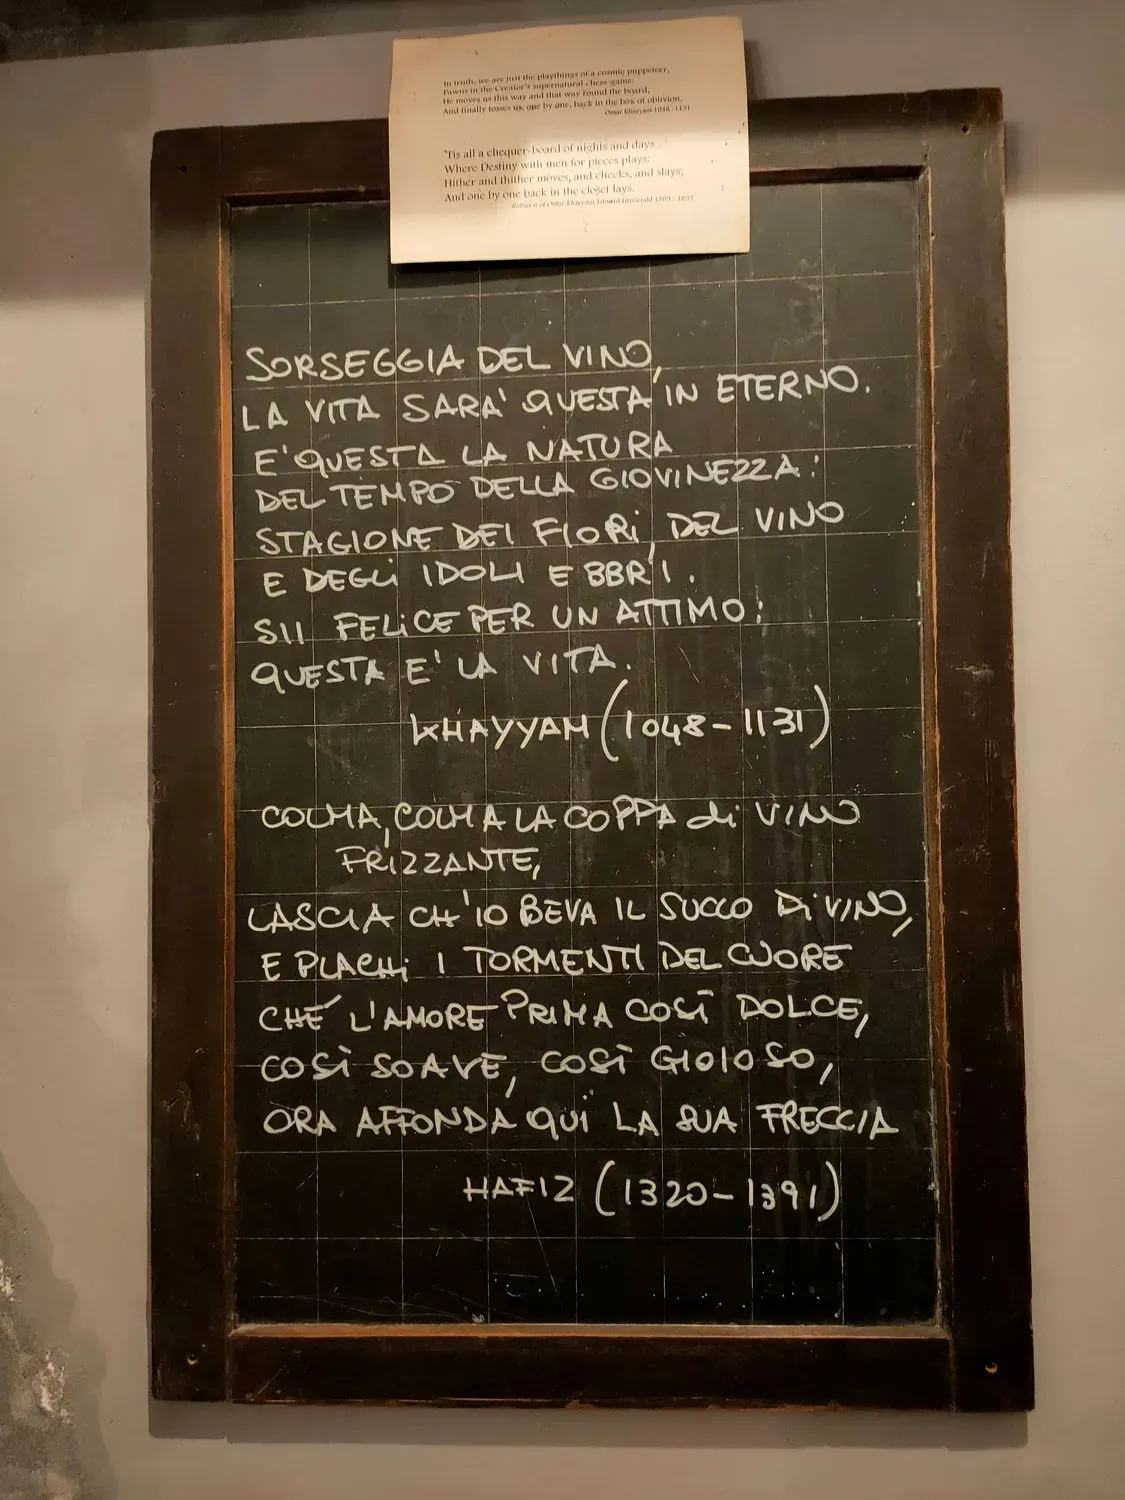 In truth, we are just the playthings of a cosmic puppeteer,
Pawns in the Creator's supernatural chess-game:
He moves us this way and that way round the board,
And finally tosses us, one by one, back in the box of oblivion.
Omar Khayyam 1048 - 1131
'Tis all a chequer-board of nights and days
Where Destiny with men for pieces plays:
Hither and thither moves, and checks, and slays;
And one by one back in the closet lays.
Rubaiyat of Omar Khayyam, Edward FitzGerald 1809 -
SORSEGGIA DEL VINO,
LA VITA SARA' QUESTA IN ETERNO.
E' QUESTA LA NATURA
DEL TEMPO DELLA GIOVINEZZA:
STAGIONE DEI FIORI, DEL VINO
E DEGLI IDOLI E BBR'I.
SII FELICE PER UN ATTIMO:
QUESTA E' LA VITA.
KHAYYAM (1048-1131)
COLMA, COLMA LA COPPA di VINO
FRIZZANTE,
LASCIA CH'IO BEVA IL SUCCO DI VINO,
E PLACHI I TORMENTI DEL CUORE
CHÉ L'AMORE PRIMA COSÌ DOLCE,
COSÌ SOAVE, COSÌ GIOIOSO,
ORA AFFONDA QUI LA SUA FRECCIA
HAFIZ (1320-1391)